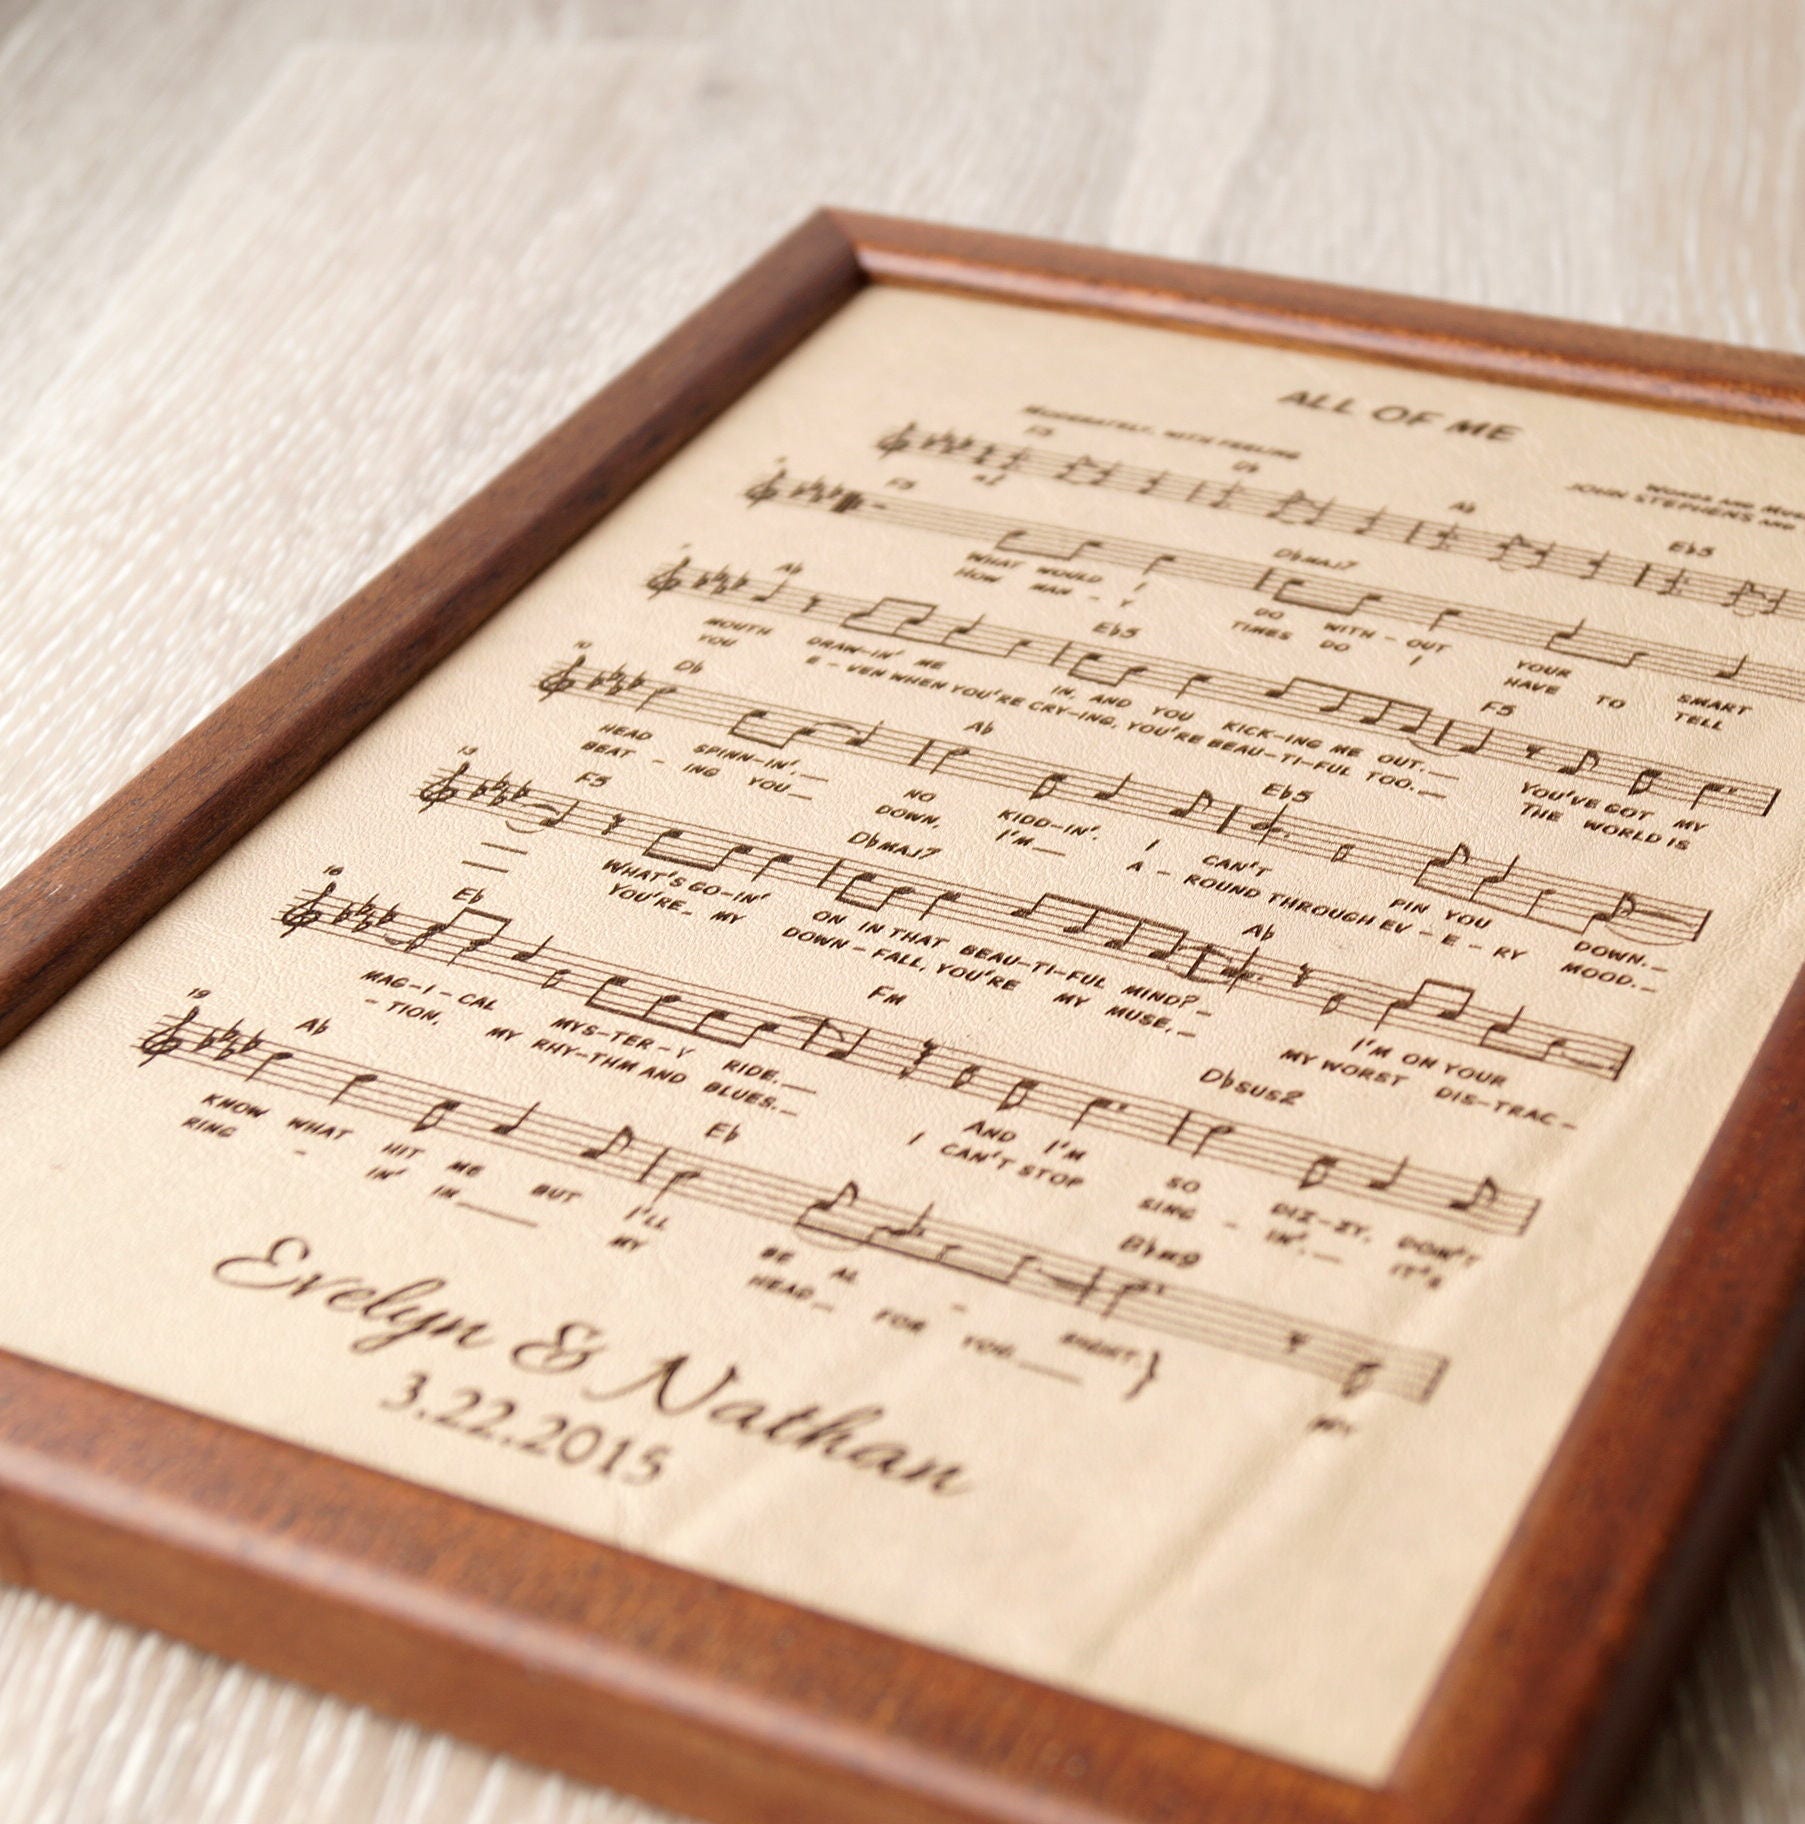 ALL OF ME
MODERATELY, WITH FEELING
WORDS AND
JOHN STEPHENS AND
F5 D♭ A♭ E♭5
F5 D♭MAJ7
WHAT WOULD I DO WITH-OUT YOUR SMART
HOW MAN-Y TIMES DO I HAVE TO TELL
A♭ E♭5 F5
MOUTH DRAW-IN' ME IN, AND YOU KICK-ING ME OUT. YOU'VE GOT MY
YOU E-VEN WHEN YOU'RE CRY-ING, YOU'RE BEAU-TI-FUL TOO. THE WORLD IS
10
D♭ A♭ E♭5
HEAD SPINN-IN'. NO KIDD-IN'. I CAN'T PIN YOU DOWN.
BEAT-ING YOU DOWN, I'M A-ROUND THROUGH EV-E-RY MOOD.
13
F5 D♭MAJ7 A♭
WHAT'S GO-IN' ON IN THAT BEAU-TI-FUL MIND? I'M ON YOUR
YOU'RE MY DOWN-FALL, YOU'RE MY MUSE, MY WORST DIS-TRAC-
16
E♭ FM D♭SUS2
MAG-I-CAL MYS-TER-Y RIDE. AND I'M SO DIZ-ZY, DON'T
-TION, MY RHY-THM AND BLUES. I CAN'T STOP SING-IN'. IT'S
19
A♭ E♭ B♭M9
KNOW WHAT HIT ME BUT I'LL BE AL-RIGHT.
RING-IN' IN MY HEAD FOR YOU.
Evelyn & Nathan
3.22.2015